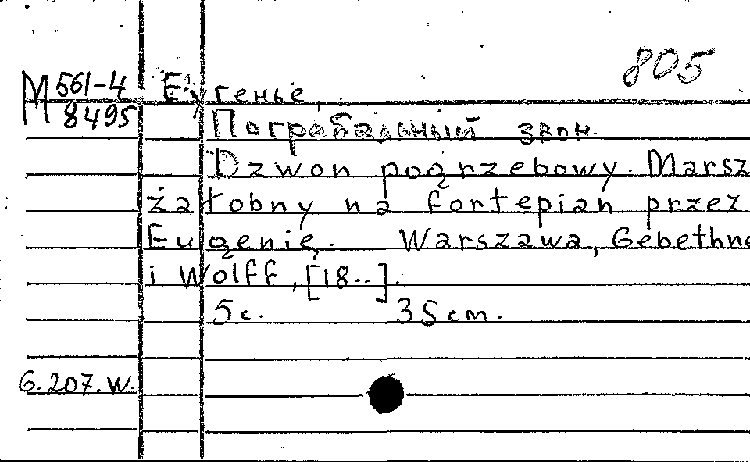 805
М 561-4
8495
Еугенье,
Погребальный звон.
Dzwon pogrzebowy. Marsz
żałobny na fortepian przez
Eugenię. Warszawa, Gebethne
i Wolff, [18..].
5 с. 35 cm.
G.207.W.